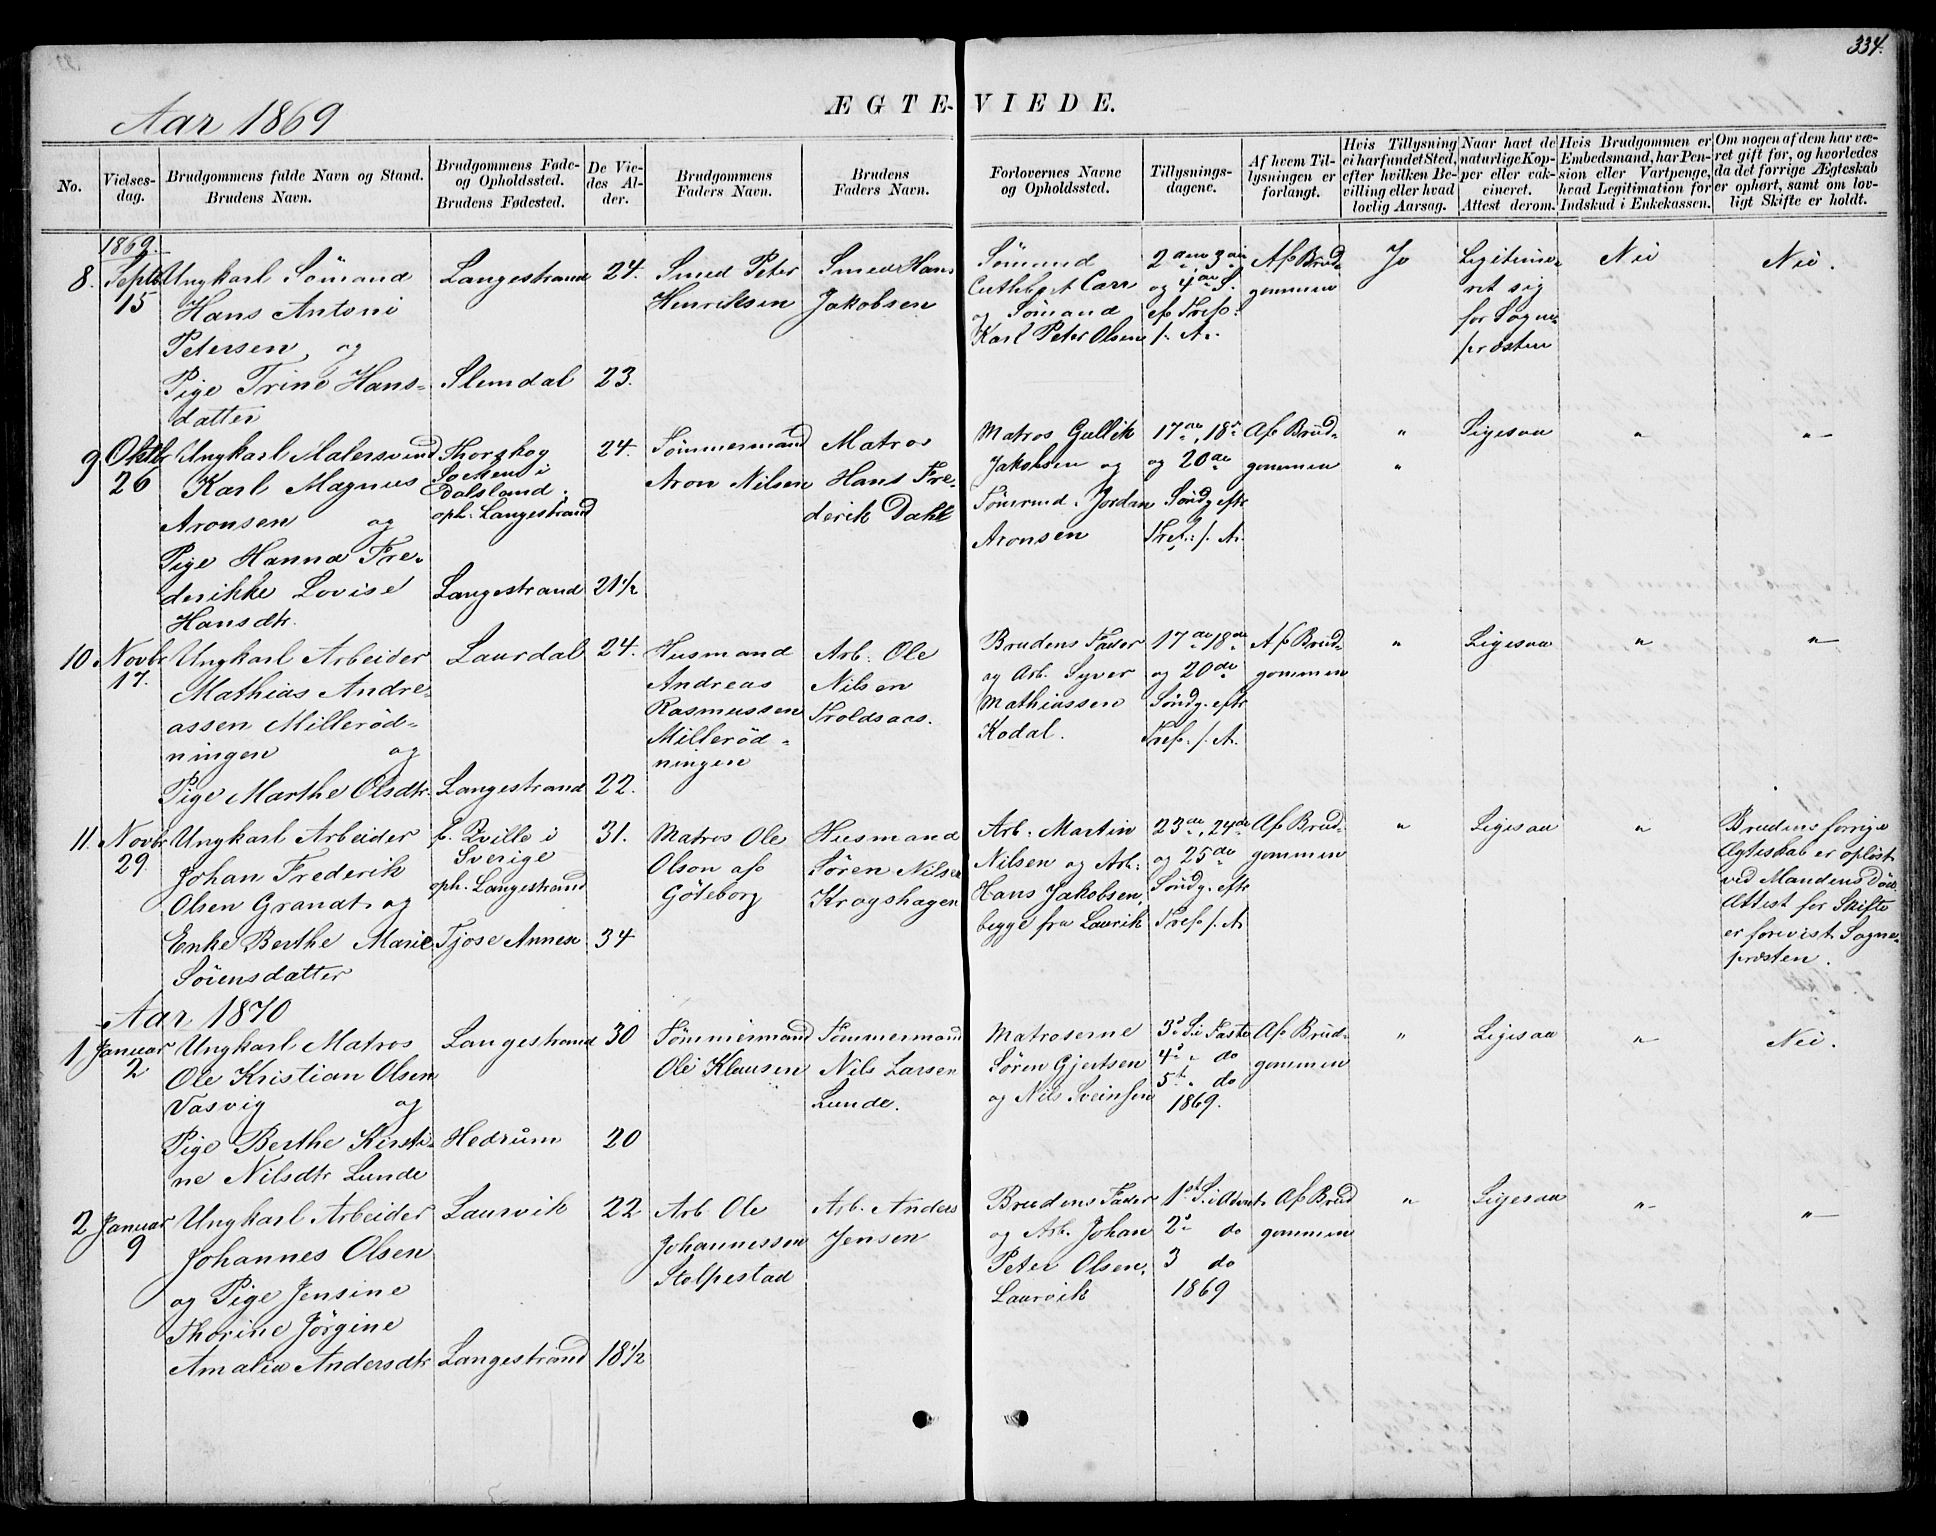 334.
Aar 1869
ÆGTE-VIEDE.
No.
Vielses-
dag.
Brudgommens fulde Navn og Stand.
Brudens Navn.
Brudgommens Føde-
og Opholdssted.
Brudens Fødested.
De Vie-
des Al-
der.
Brudgommens
Faders Navn.
Brudens
Faders Navn.
Forlovernes Navne
og Opholdssted.
Tillysnings-
dagene.
Af hvem Til-
lysningen er
forlangt.
Hvis Tillysning
ei har fundet Sted,
efter hvilken Be-
villing eller hvad
lovlig Aarsag.
Naar havt de
naturlige Kop-
per eller vak-
cineret.
Attest derom.
Hvis Brudgommen er
Embedsmand, har Pen-
sion eller Vartpenge,
hvad Legitimation for
Indskud i Enkekassen.
Om nogen af dem har væ-
ret gift før, og hvorledes
da det forrige Ægteskab
er ophørt, samt om lov-
ligt Skifte er holdt.
1869.
8.
Septb.
15
Ungkarl Sömand
Hans Antoni
Petersen og
Pige Trine Hans-
datter
Langestrand
Slemdal
24.
23.
Smed Peter
Henriksen
Smed Hans
Jakobsen
Sömand
Cuthbert Carr
og Sömand
Karl Peter Olsen
og 4de S.
ef Tref:
s. A.
Af Brud-
gommen
Jo
Legitime-
ret sig
for Sogne-
præsten
Nei
Nei.
9
Oktbr
26
Ungkarl Malersvend
Karl Magnus
Aronsen og
Pige Hanna Fre-
derikke Lovise
Hansdtr.
Thorskog
Socken i
Dalsland.
oph. Langestrand
Langestrand
24.
21 1/2
Tömmermand
Aron Nilsen
Matros
Hans Fre-
derik Dahl
Matros Gullik
Jakobsen og
Tömrmd. Jordan
Aronsen
17de, 18de
og 20de
Söndg. eftr
Tref. s. A.
Af Brud-
gommen
"
"
Ligesaa
"
"
10
Novbr
17.
Ungkarl Arbeider
Mathias Andre-
assen Milleröd-
ningen og
Pige Marthe Olsdtr.
Laurdal
Langestrand
24.
22.
Husmand
Andreas
Rasmussen
Milleröd-
ningen
Arb. Ole
Nilsen
Troldsaas.
Brudens Fader
og Arb. Syver
Mathiassen
Kodal.
17de 18de
og 20de
Söndg. eftr
Tref. s. A.
Af Brud-
gommen
"
Ligesaa
"
"
11.
Novbr
29.
Ungkarl Arbeider
Johan Frederik
Olsen Granat og
Enke Berthe Marie
Sörensdatter
f. Qville i
Sverige
oph. Langestrand
Tjose Annex
31.
34
Matros Ole
Olson af
Göteborg
Husmand
Sören Nilsen
Kragshagen
Arb. Martin
Nilsen og Arb:
Hans Jakobsen,
begge fra Laurvik
23de, 24de
og 25de
Söndg. eftr
Tref. s. A.
Af Brud-
gommen
"
Ligesaa
"
Brudens forrige
Ægteskab er oplöst
ved Mandens Död.
Attest for Skifte
er forevist Sogne-
præsten.
Aar 1870
1
Januar
2
Ungkarl Matros
Ole Kristian Olsen
Vasvig og
Pige Berthe Kirsti-
ne Nilsdtr Lunde
Langestrand
Hedrum
30
20
Tömmermand
Ole Klausen
Tömmermand
Nils Larsen
Lunde.
Matroserne
Sören Gjertsen
og Nils Sveinsen
3d S. i Faste
4d " do
5t " do
1869.
Af Brud-
gommen
"
Ligesaa
"
Nei.
2
Januar
9
Ungkarl Arbeider
Johannes Olsen
og Pige Jensine
Thorine Jörgine
Amalia Andersdtr
Laurvik
Langestrand
22
18 1/2
Arb. Ole
Johannessen
Stolpestad
Arb. Anders
Jensen
Brudens Fader
og Arb. Johan
Peter Olsen,
Laurvik
1st S. i Advent
2d do
3 do
1869
Af Brud
gommen
"
Ligesaa
"
"